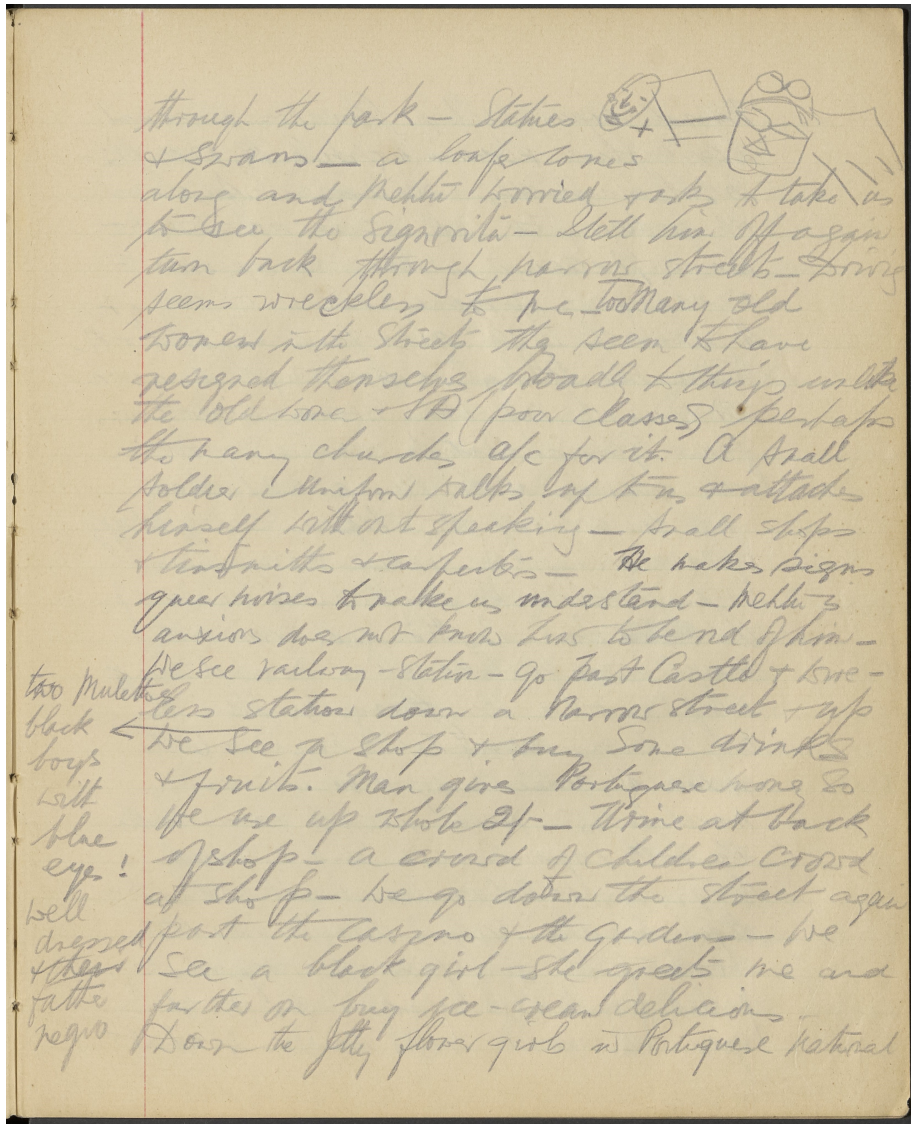 through the park – Statues
& Swans – a loafer comes
along and Mehliss worried & asks to take us
to see the Signorita – I tell him off again
turn back through narrow streets – Driving
seems wreckless to me – too many old
women in the Streets they seem to have
resigned themselves broadly to things unlike
the old in SA (poor classes) perhaps
the many churches a/c for it. A small
soldier in Uniform walks up to us & attaches
himself without speaking – small shops
& tinsmiths & carpenters – He makes signs
queer noises to make us understand – Mehliss
anxious does not know how to be rid of him –
We see railway-station – go past Castle & wire-
less station down a Narrow street & up
We see a shop & buy Some drinks
& fruits. Man gives Portuguese money so
We use up whole 2/- – Urine at back
of shop – a crowd of children crowd
at shop – We go down the street again
past the Casino & the Gardens – We
See a black girl – she greets me and
further on buy ice-cream delicious.
Down the Jetty flower girls in Portuguese National
two Mulatto
black
boys
with
blue
eyes!
well
dressed
& their
father
negro